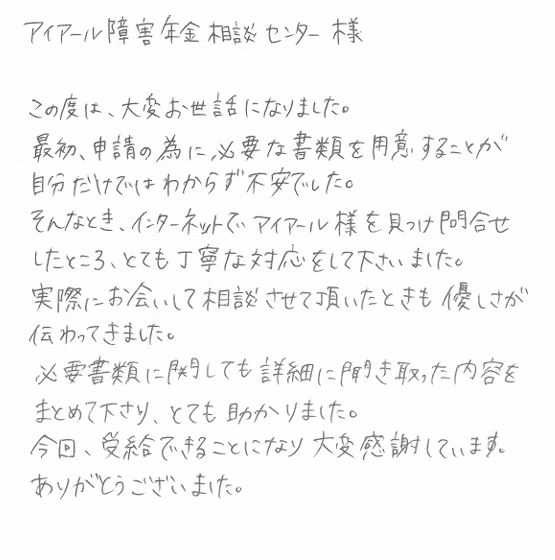 アイアール障害年金相談センター様
この度は、大変お世話になりました。
最初、申請の為に、必要な書類を用意することが
自分だけではわからず不安でした。
そんなとき、インターネットでアイアール様を見つけ問合せ
したところ、とても丁寧な対応をして下さいました。
実際にお会いして相談させて頂いたときも優しさが
伝わってきました。
必要書類に関しても詳細に聞き取った内容を
まとめて下さり、とても助かりました。
今回、受給できることになり大変感謝しています。
ありがとうございました。